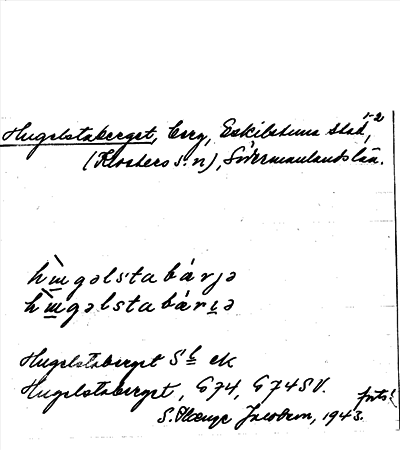 1-2
Hugelstaberget, berg, Eskilstuna stad,
(Klosters s:n), Södermanlands län.
hɯ̀gəlstabárjə
hɯ̀gəlstabárɩə
Hugelstaberget Sb ek
Hugelstaberget, G74, G74SV.
forts!
S. Jacobson, 1943.